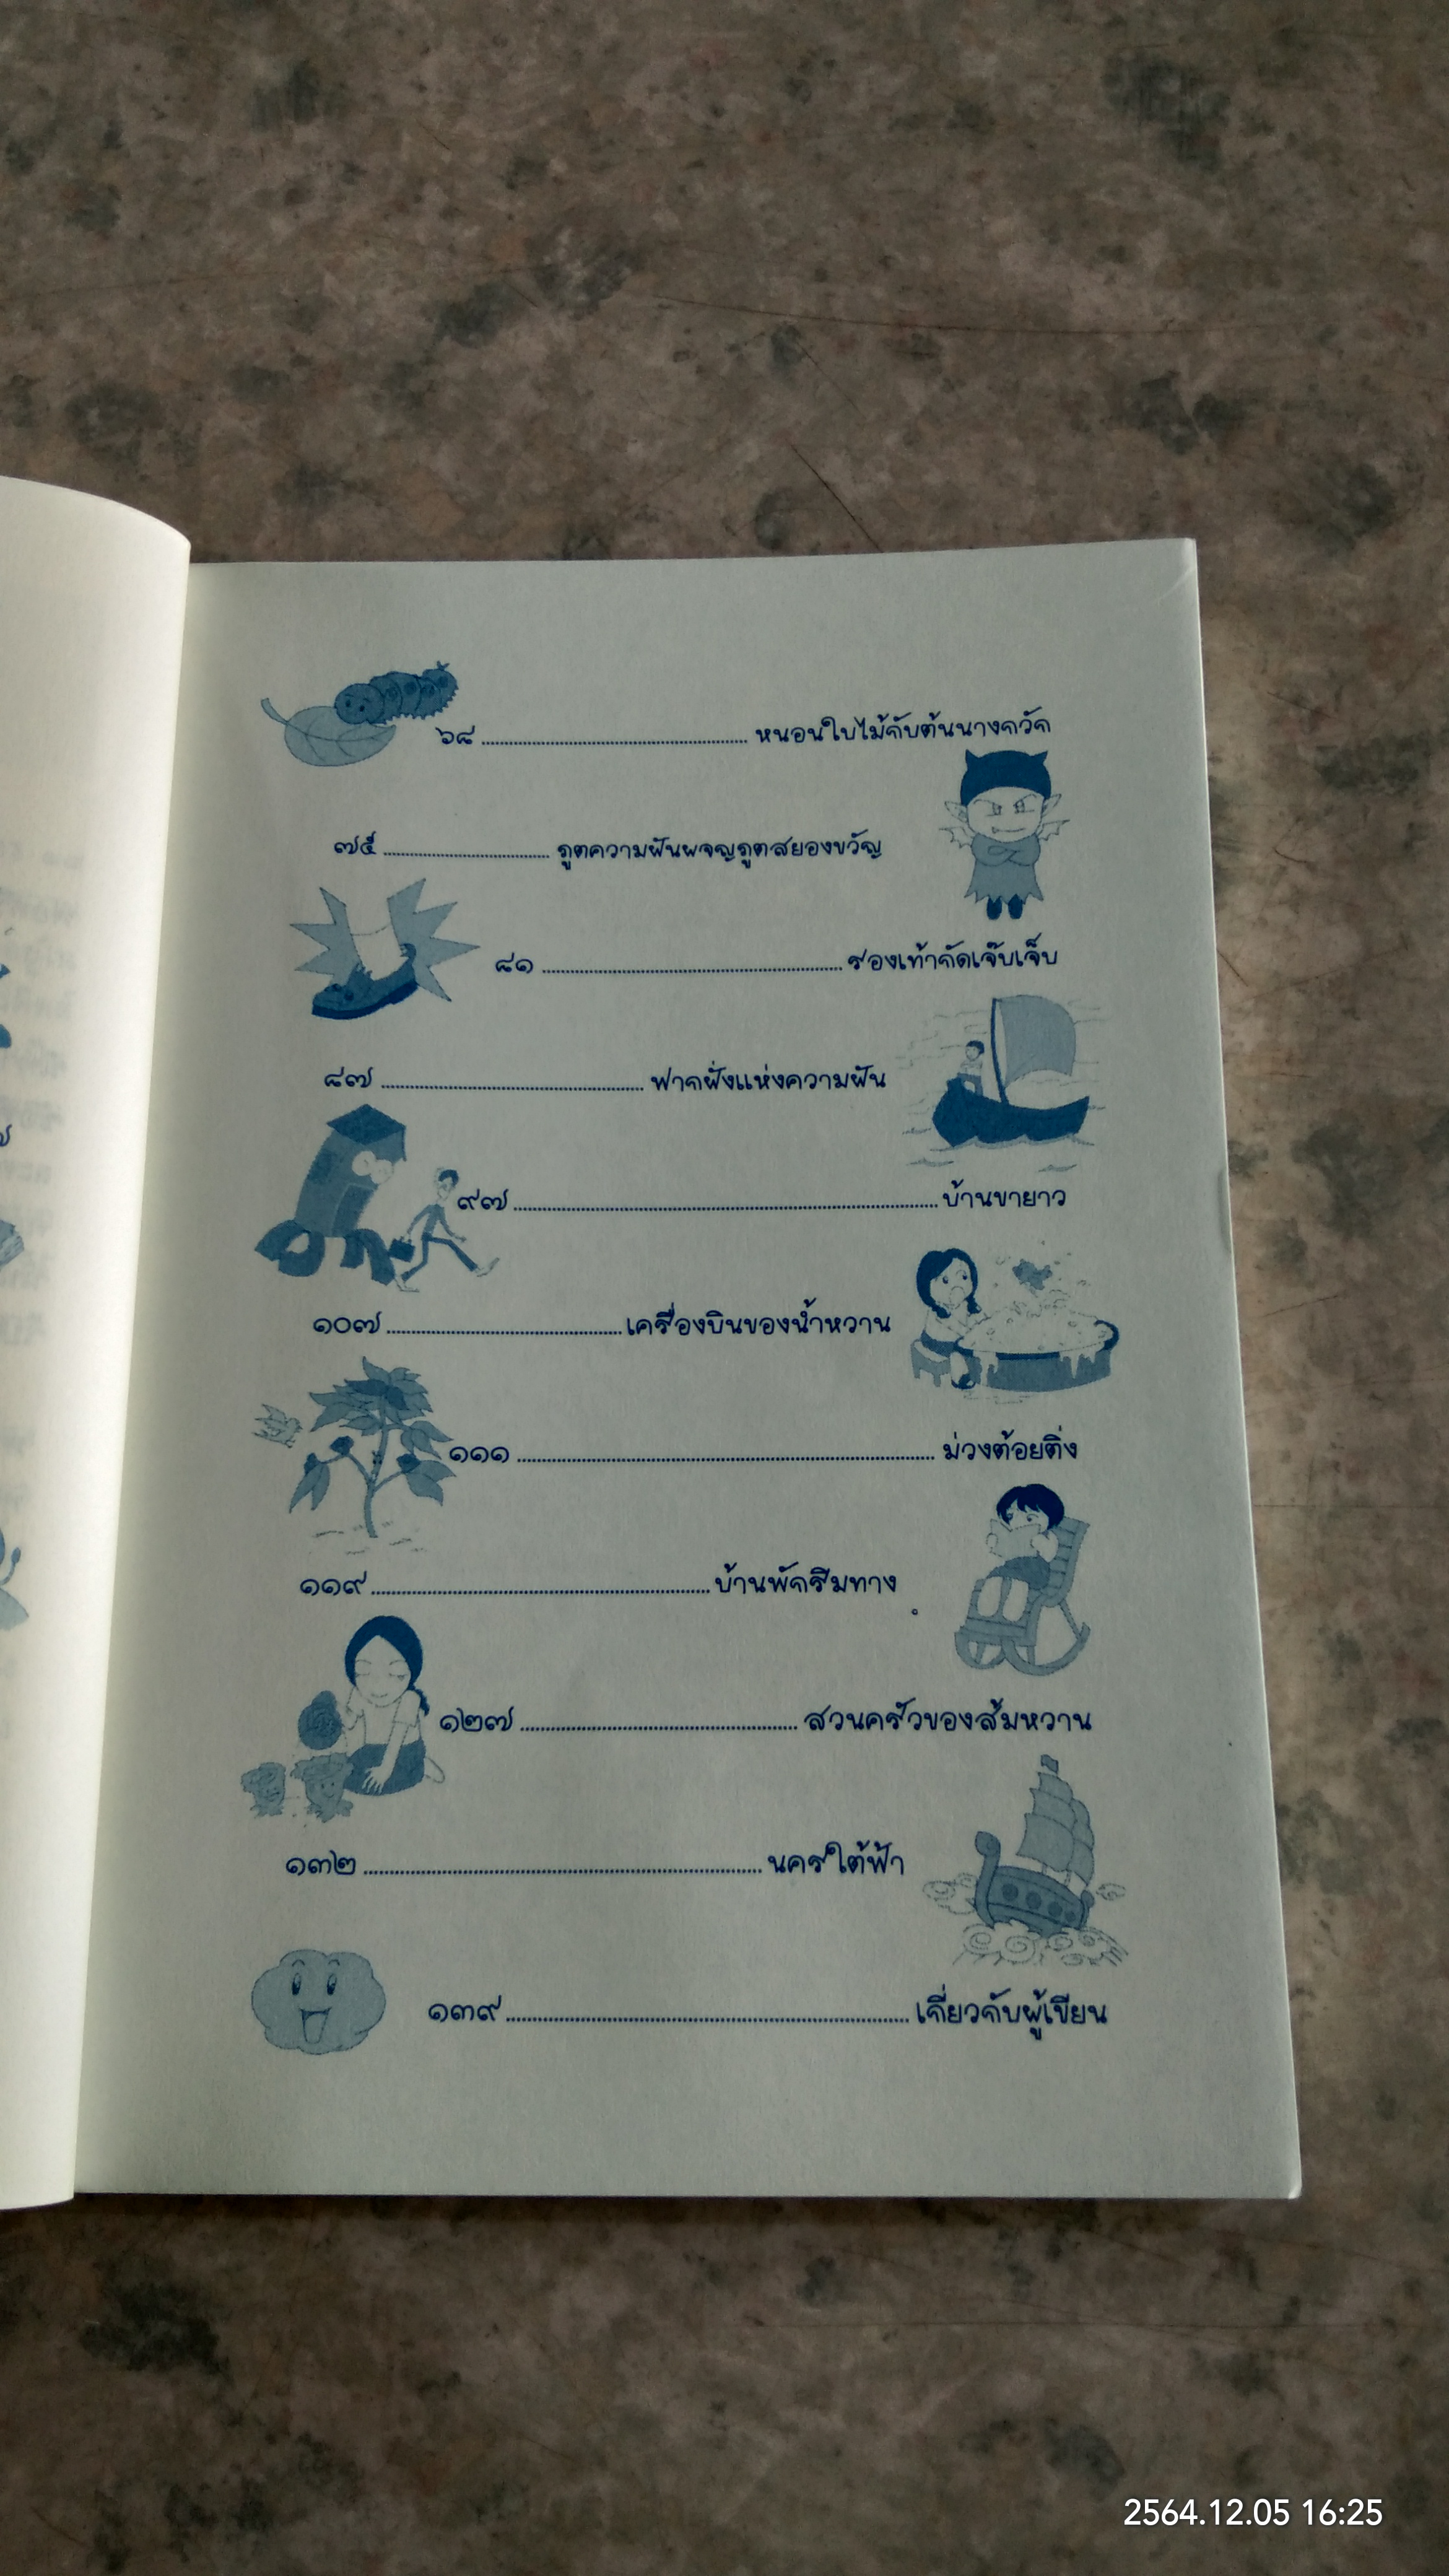 ๖๘ ........ หนอนใบไม้กับต้นนางกวัก
๗๕ ........ ภูตความฝันผจญภูตสยองขวัญ
๘๑ ........ รองเท้ากัดเจ๊บเจ็บ
๘๗ ........ ฟากฝั่งแห่งความฝัน
๙๗ ........ บ้านขายาว
๑๐๗ ........ เครื่องบินของน้ำหวาน
๑๑๑ ........ ม่วงต้อยติ่ง
๑๑๙ ........ บ้านพักริมทาง
๑๒๗ ........ สวนครัวของส้มหวาน
๑๓๒ ........ นครใต้ฟ้า
๑๓๙ ........ เกี่ยวกับผู้เขียน
2564.12.05 16:25